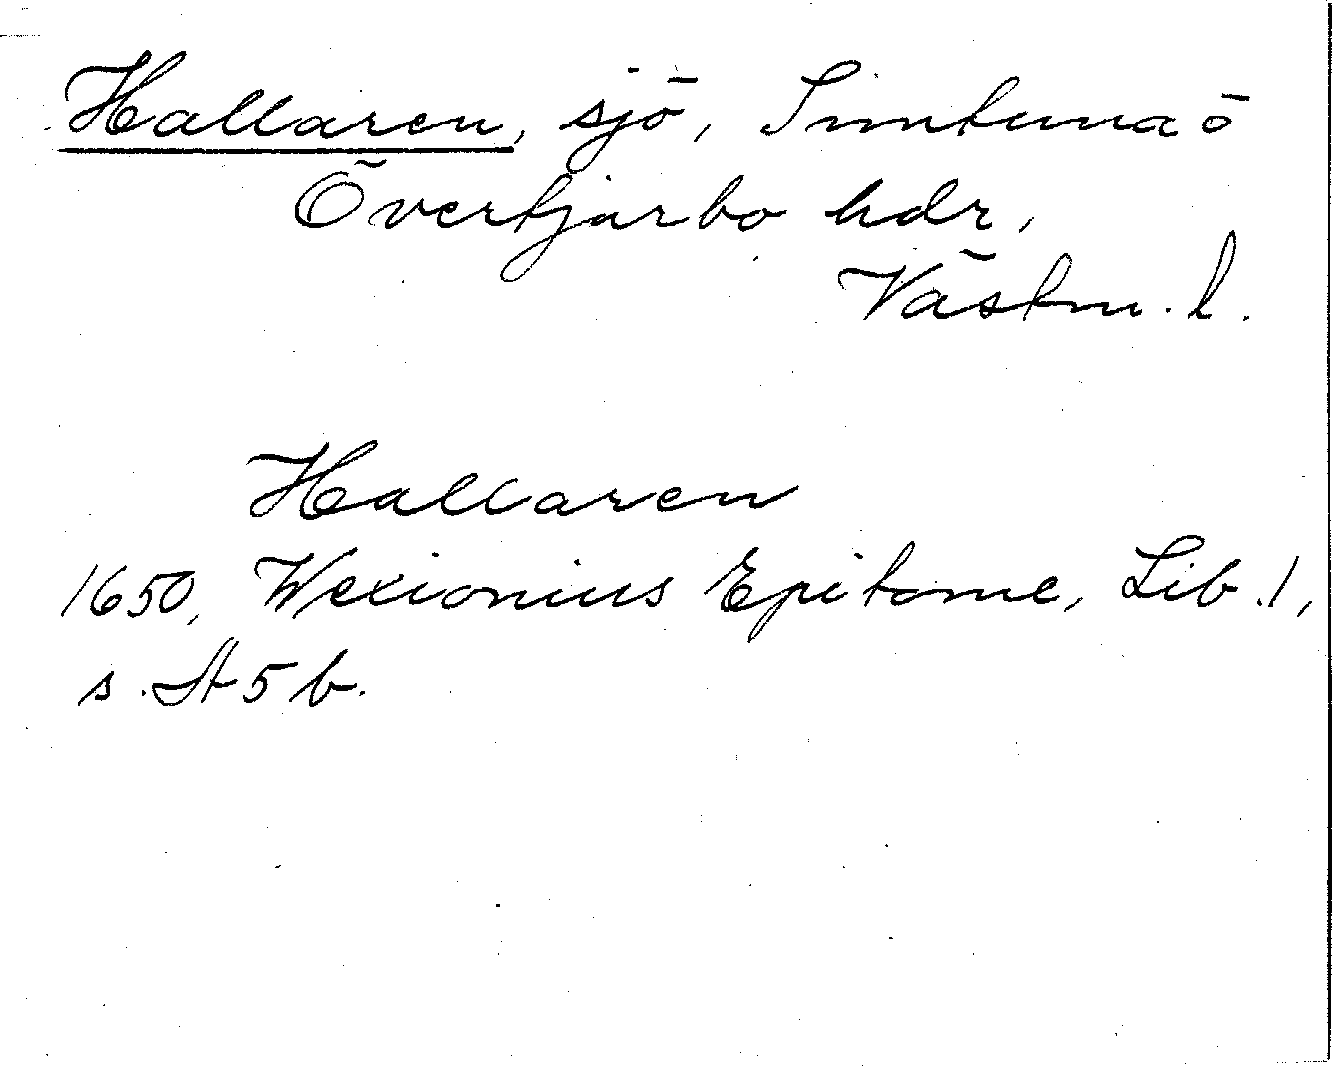 Hallaren, sjö, Simtuna ö
Övertjurbo hdr,
Västm. l.
Hallaren
1650, Wexionius Epitome, Lib. 1,
s. A 5 b.